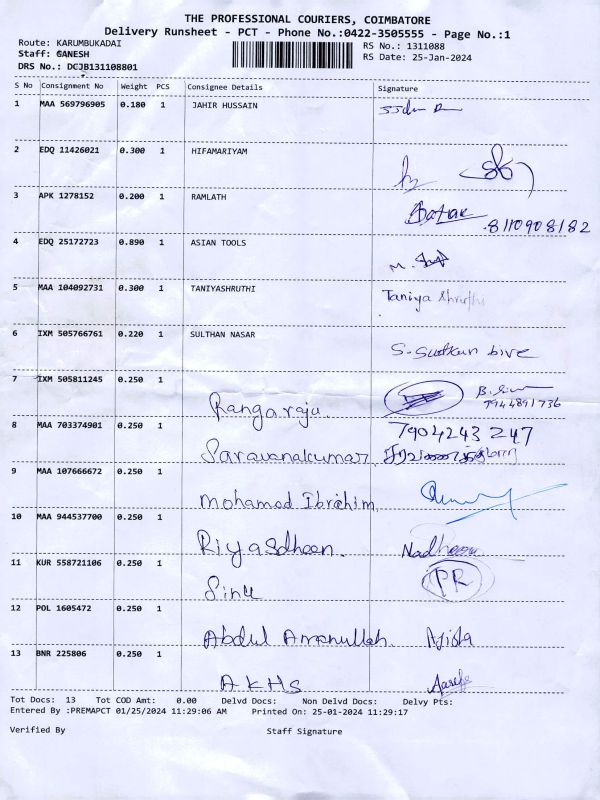 THE PROFESSIONAL COURIERS, COIMBATORE
Delivery Runsheet - PCT - Phone No.:0422-3505555 - Page No.:1
Route: KARUMBUKADAI
RS No.: 1311088
Staff: GANESH
RS Date: 25-Jan-2024
DRS No.: DCJB131108801
S No Consignment No Weight PCS Consignee Details Signature
1 MAA 569796905 0.180 1 JAHIR HUSSAIN
2 EDQ 11426021 0.300 1 HIFAMARIYAM
3 APK 1278152 0.200 1 RAMLATH
8110908182
4 EDQ 25172723 0.890 1 ASIAN TOOLS
5 MAA 104092731 0.300 1 TANIYASHRUTHI Taniya Shruthi
6 IXM 505766761 0.220 1 SULTHAN NASAR
7 IXM 505811245 0.250 1 Rangaraju.
8 MAA 703374901 0.250 1 Saravanakumar 7904243247
9 MAA 107666672 0.250 1 Mohamed Ibrahim.
10 MAA 944537700 0.250 1 Riyasdheen. Nadheem
11 KUR 558721106 0.250 1 Sinu PR
12 POL 1605472 0.250 1 Abdul Amanullah.
13 BNR 225806 0.250 1 AKHS
Tot Docs: 13 Tot COD Amt: 0.00 Delvd Docs: Non Delvd Docs: Delvy Pts:
Entered By :PREMAPCT 01/25/2024 11:29:06 AM Printed On: 25-01-2024 11:29:17
Verified By Staff Signature